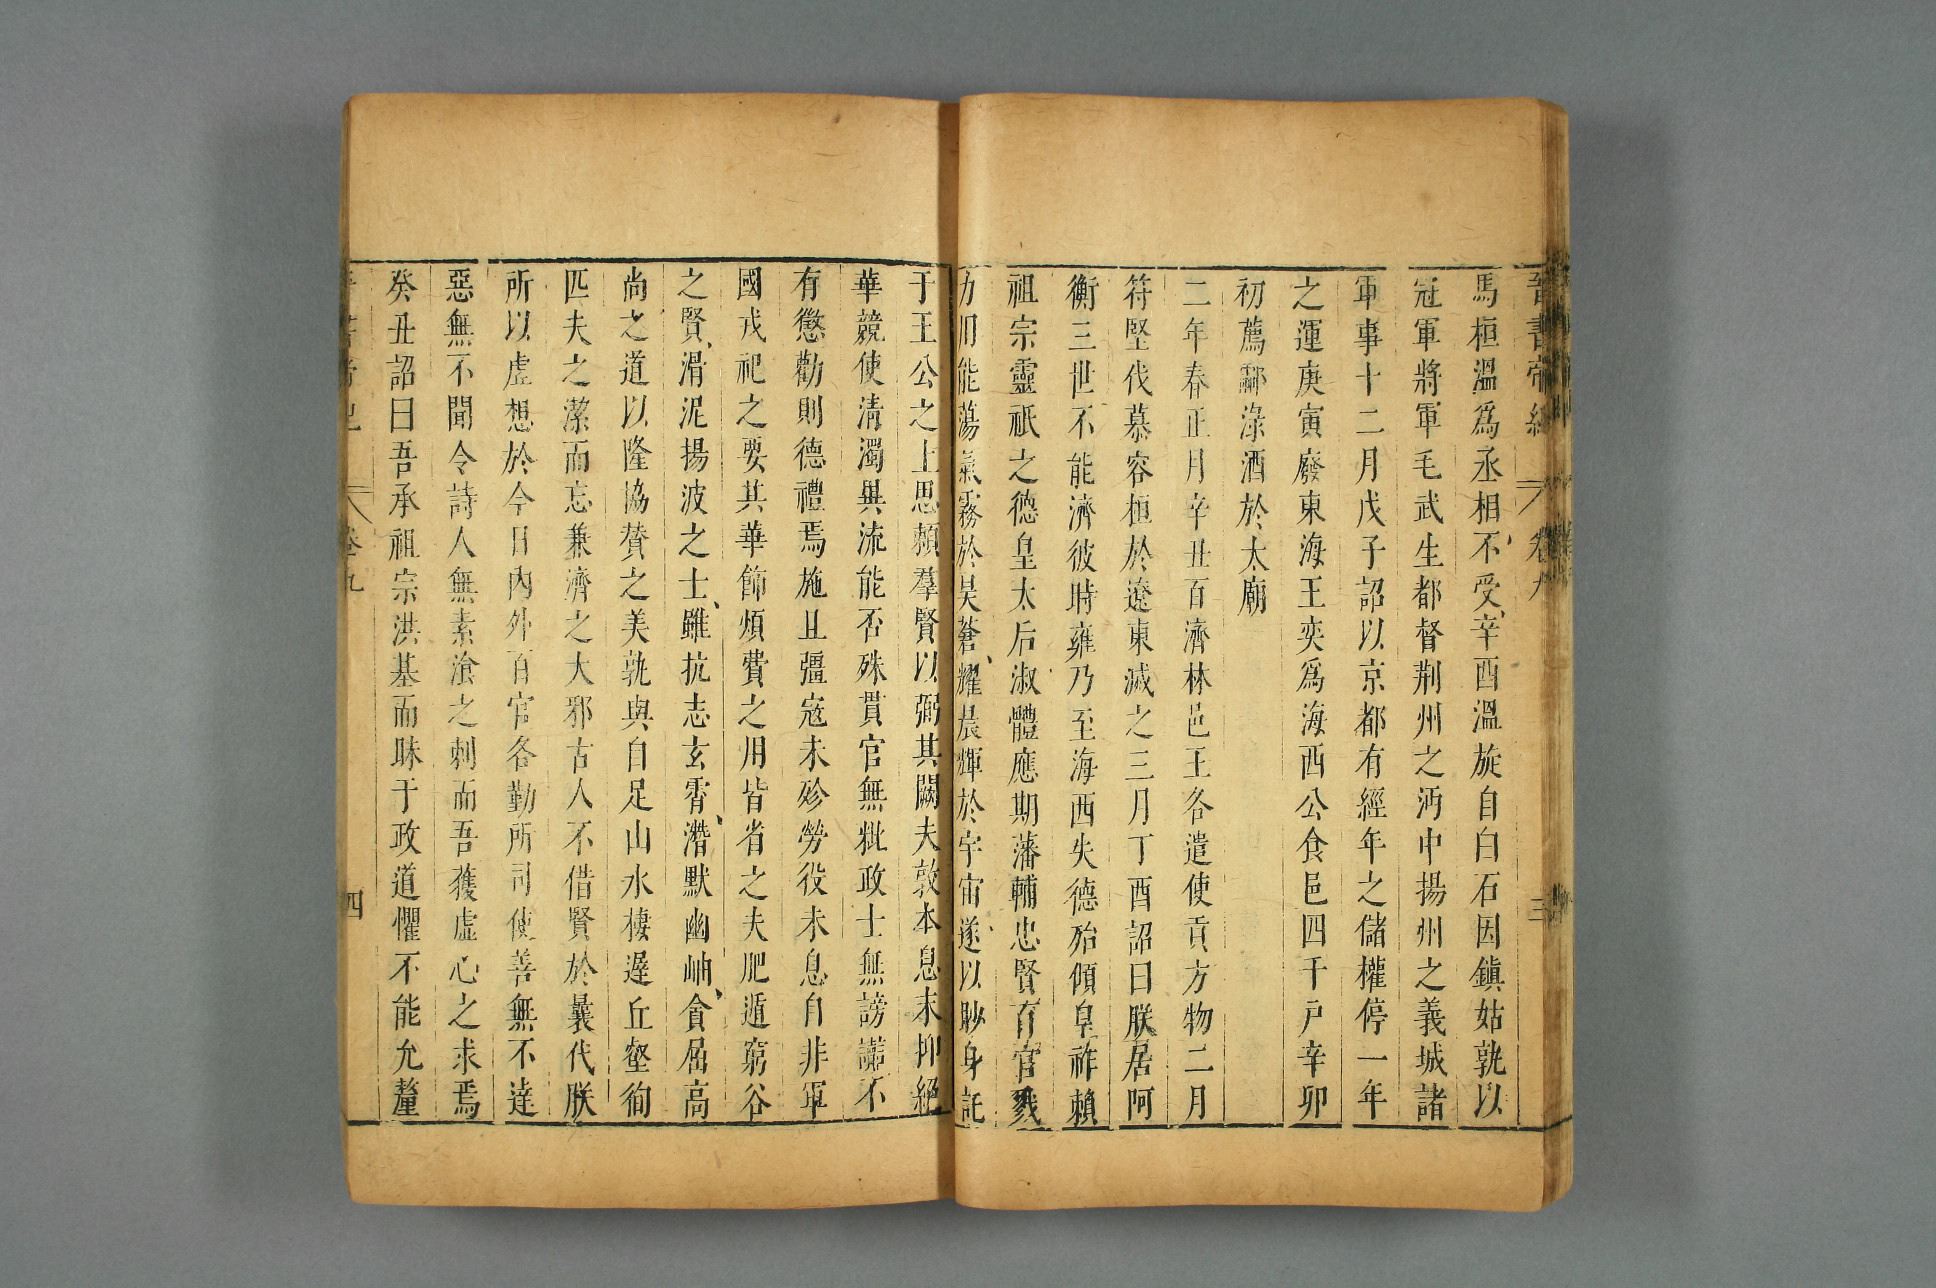 晉書帝紀 卷九 三
馬桓溫爲丞相不受辛酉溫旋自白石因鎮姑孰以
冠軍將軍毛武生都督荆州之沔中揚州之義城諸
軍事十二月戊子詔以京都有經年之儲權停一年
之運庚寅廢東海王奕爲海西公食邑四千戸辛卯
初薦酃淥酒於太廟
二年春正月辛丑百濟林邑王各遣使貢方物二月
苻堅伐慕容桓於遼東滅之三月丁酉詔曰朕居阿
衡三世不能濟彼時雍乃至海西失德殆傾皇祚賴
祖宗靈祇之德皇太后淑體應期藩輔忠賢百官戮
力用能蕩氣霧於昊蒼耀晨輝於宇宙遂以眇身託
于王公之上思賴羣賢以弼其闕夫敦本息末抑絕
華競使清濁異流能否殊貫官無粃政士無謗讟不
有懲勸則德禮焉施且彊寇未殄勞役未息自非軍
國戎祀之要其華飾煩費之用皆省之夫肥遁窮谷
之賢滑泥揚波之士雖抗志玄霄潛默幽岫貪屈高
尚之道以隆協贊之美孰與自足山水棲遲丘壑徇
匹夫之潔而忘兼濟之大邪古人不借賢於曩代朕
所以虛想於今日內外百官各勤所司使善無不達
惡無不聞令詩人無素飡之刺而吾獲虛心之求焉
癸丑詔曰吾承祖宗洪基而昧于政道懼不能允釐
卷九 四